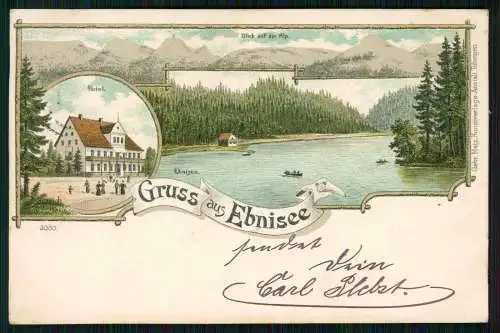 Blick auf die Alp.
Hotel.
Ebnisee.
Gruss aus Ebnisee
3050.
sendet
Dein
Carl
Gebr. Metz, Kunstverlags-Anstalt, Tübingen.